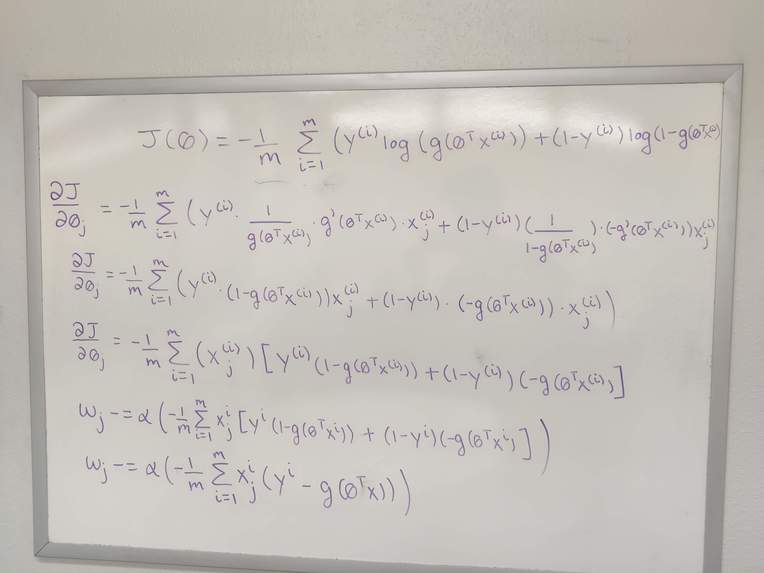 J(θ) = -1/m Σ_{i=1}^{m} (y^{(i)} log(g(θ^T x^{(i)})) + (1-y^{(i)}) log(1-g(θ^T x^{(i)})
∂J/∂θ_j = -1/m Σ_{i=1}^{m} (y^{(i)} · 1/g(θ^T x^{(i)}) · g'(θ^T x^{(i)}) · x_j^{(i)} + (1-y^{(i)}) (1/(1-g(θ^T x^{(i)})) · (-g'(θ^T x^{(i)})) x_j^{(i)}
∂J/∂θ_j = -1/m Σ_{i=1}^{m} (y^{(i)} · (1-g(θ^T x^{(i)})) x_j^{(i)} + (1-y^{(i)}) · (-g(θ^T x^{(i)})) · x_j^{(i)})
∂J/∂θ_j = -1/m Σ_{i=1}^{m} (x_j^{(i)}) [y^{(i)} (1-g(θ^T x^{(i)})) + (1-y^{(i)}) (-g(θ^T x^{(i)})]
w_j -= α(-1/m Σ_{i=1}^{m} x_j^i [y^i (1-g(θ^T x^i)) + (1-y^i)(-g(θ^T x^i)])
w_j -= α(-1/m Σ_{i=1}^{m} x_j^i (y^i - g(θ^T x)))